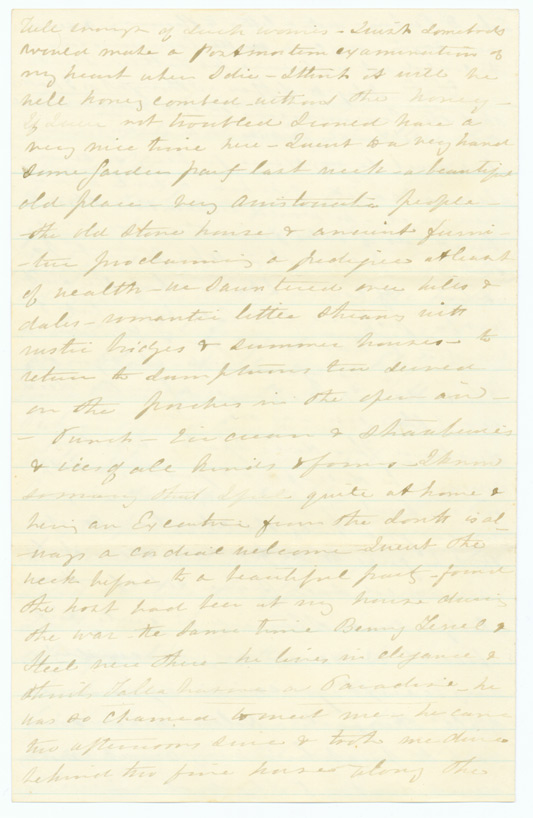 well enough of such worries - I wish somebody
would make a postmortem examination of
my heart when I die - I think it will be
well honey combed without the honey -
not troubled I could have a
very nice time here - I went to a very hand
some Garden party last week - a beautiful
old place - very aristocratic people -
the old stone house & ancient furni-
-ture proclaiming a pedigree at least
of wealth - we sauntered over hills &
dales - romantic little streams with
rustic bridges & summer houses - to
return to sumptuous tea served
on the porches in the open air -
- Punch - Ice cream & strawberries
& ices of all kinds & forms - I know
so many that I feel quite at home &
being an from the South is al-
ways a cordial welcome - I went the
week before to a beautiful party - found
the host had been at my house during
the war - the same time Benny &
Steel were there - he lives in elegance &
thinks Tallahassee a Paradise - he
was so charmed to meet me - he came
two afternoons since & took me drive
behind two fine horses along the